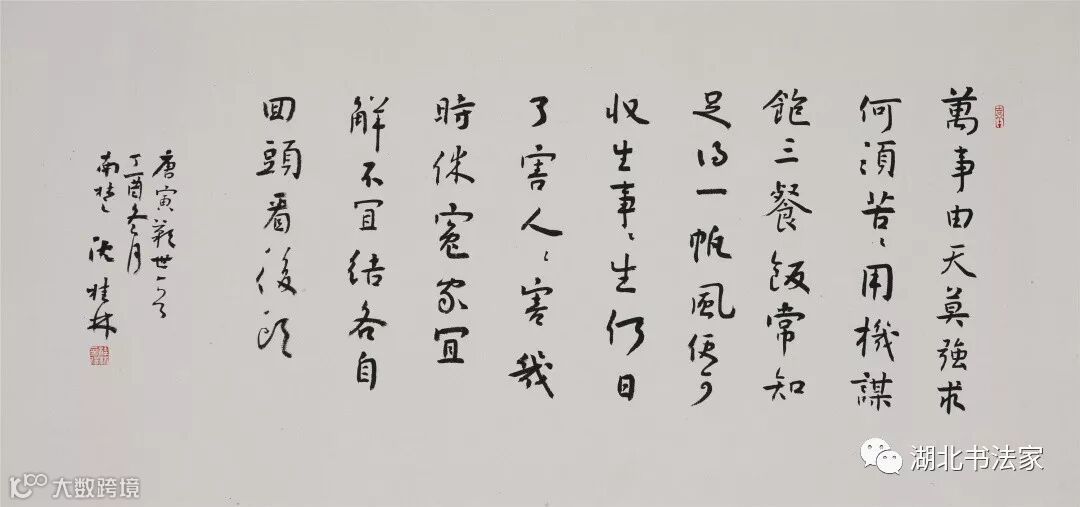 萬事由天莫強求
何須苦〻用機謀
飽三餐飯常知
足得一帆風便可
收生事〻生何日
了害人〻害我
時休寃家宜
解不宜結各自
回頭看後頭
唐寅歎世
丁酉冬月
沈桂林
湖北书法家
大数跨境